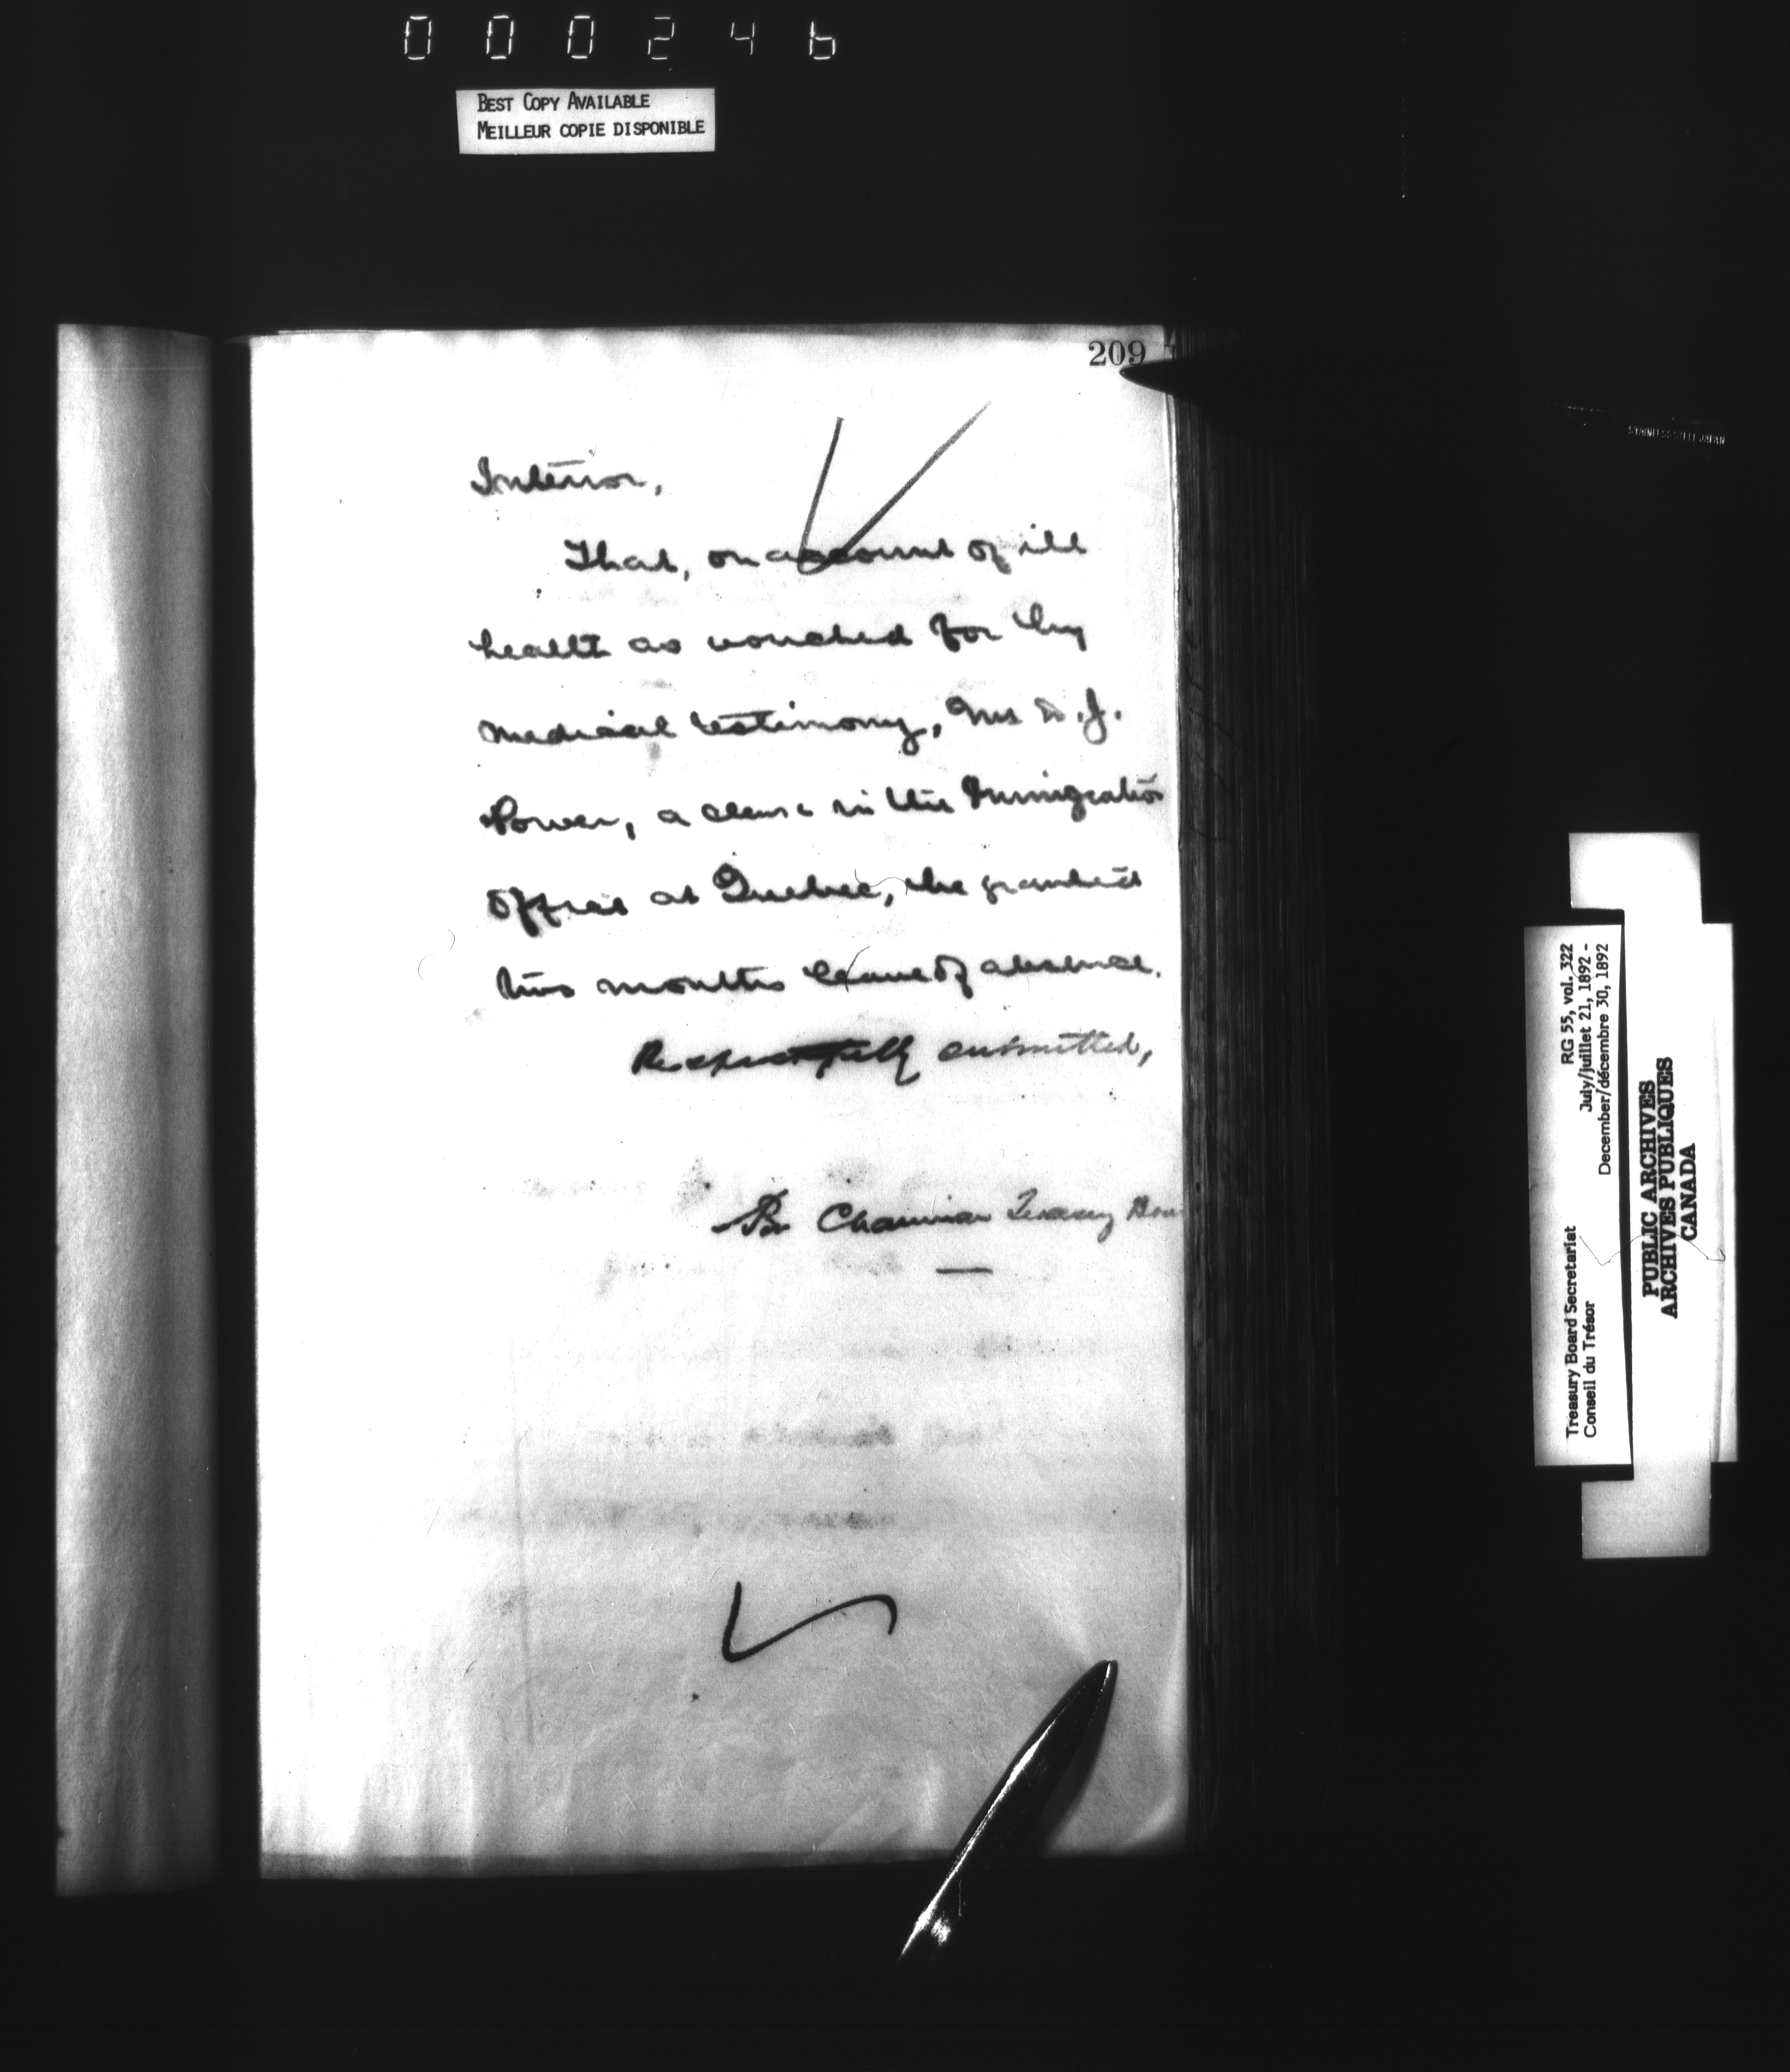 000246
BEST COPY AVAILABLE
MEILLEUR COPIE DISPONIBLE
209
Interior,
That, on account of ill
health as vouched for by
medical testimony, Mr D. J.
Power, a clerk in the Immigration
Office at Quebec, be granted
two months leave of absence.
Respectfully submitted,
Chairman Treasury Boa
STAINLESS STEEL JAPAN
Treasury Board Secretariat RG 55, vol. 322
Conseil du Trésor July/juillet 21, 1892 -
December/décembre 30, 1892
PUBLIC ARCHIVES
ARCHIVES PUBLIQUES
CANADA